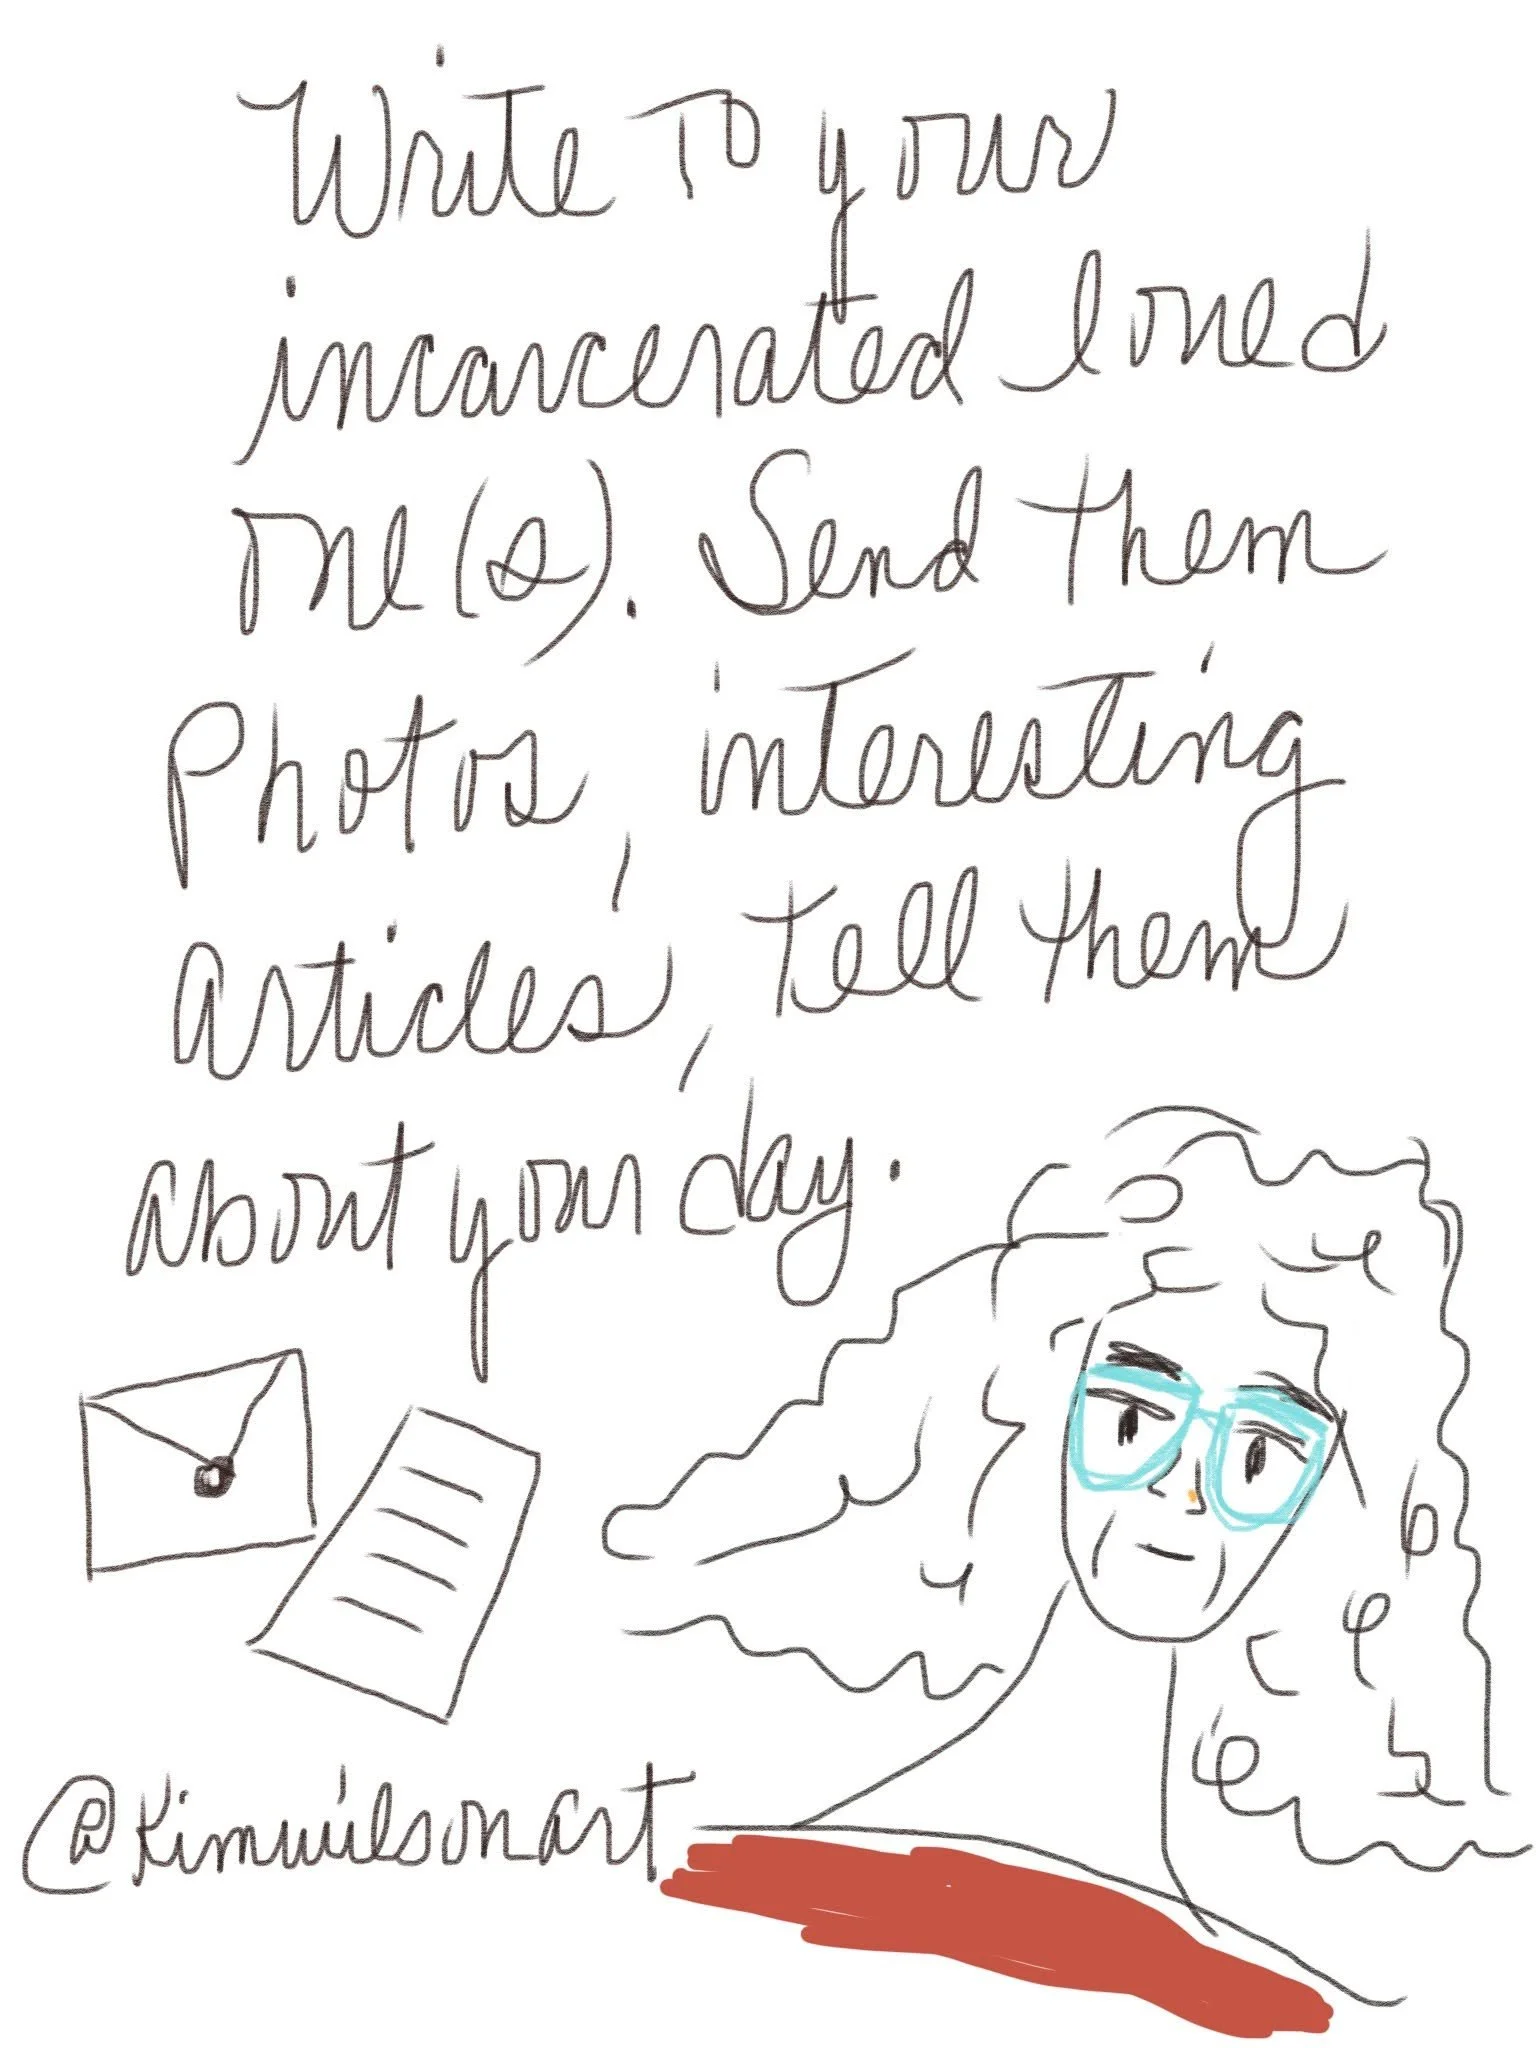 Write to your
incarcerated loved
one(s). Send them
Photos, interesting
articles, tell them
about your day.
@Kimwilsonart